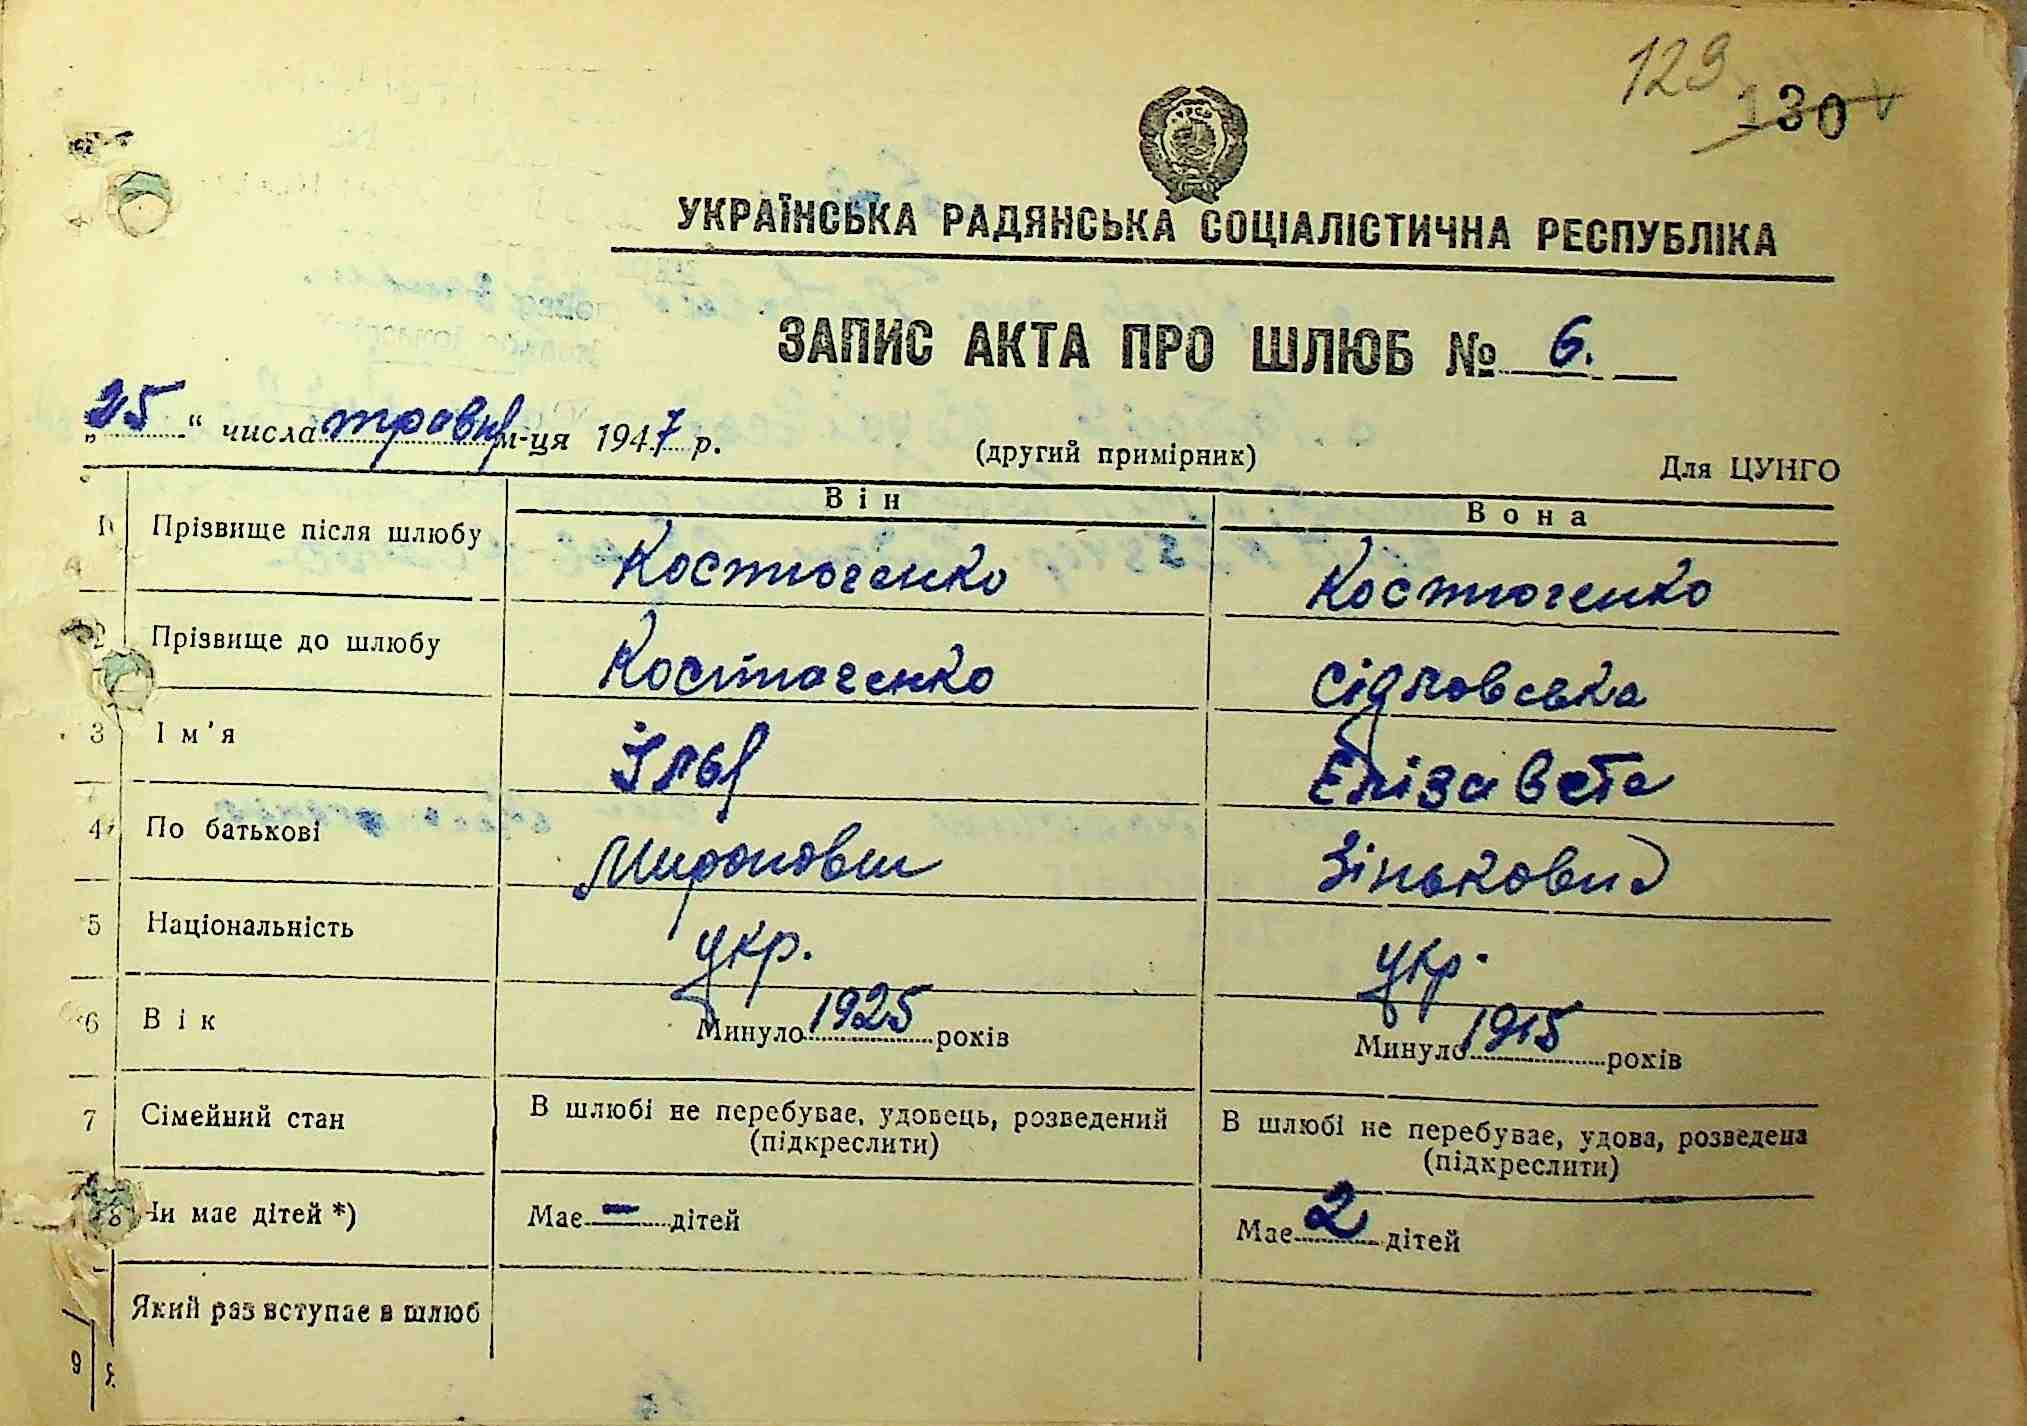 129
130
УКРАЇНСЬКА РАДЯНСЬКА СОЦІАЛІСТИЧНА РЕСПУБЛІКА
ЗАПИС АКТА ПРО ШЛЮБ № 6.
„25“ числа травня м-ця 1947 р.
(другий примірник)
Для ЦУНГО
Він Вона
1 Прізвище після шлюбу Костюченко Костюченко
2 Прізвище до шлюбу Костюченко Сідловська
3 Ім'я Ілья Елізавета
4 По батькові Миронович Зіньковна
5 Національність укр. укр.
6 Вік Минуло 1925 років Минуло 1915 років
7 Сімейний стан В шлюбі не перебуває, удовець, розведений (підкреслити) В шлюбі не перебуває, удова, розведена (підкреслити)
8 Чи має дітей *) Має — дітей Має 2 дітей
Який раз вступає в шлюб
9